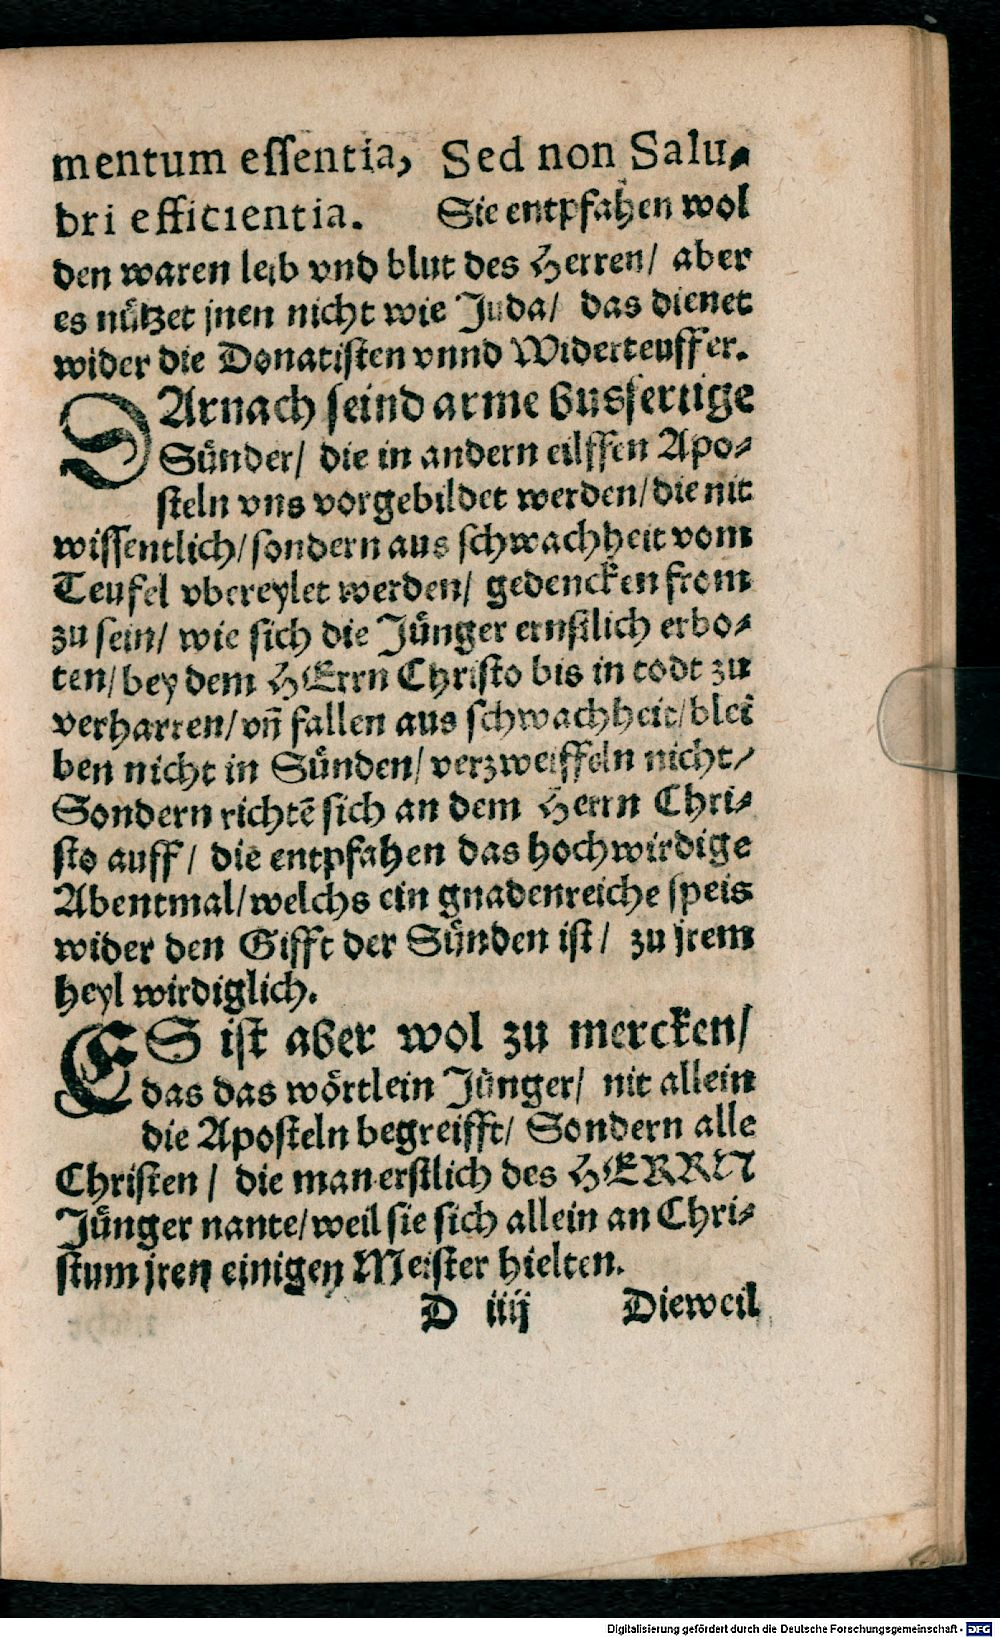 mentum essentia, Sed non Salu-
bri efficientia. Sie entpfahen wol
den waren leib vnd blut des Herren/ aber
es nützet jnen nicht wie Juda/ das dienet
wider die Donatisten vnnd Widerteuffer.
DArnach seind arme busfertige
Sünder/ die in andern eilffen Apo-
steln vns vorgebildet werden/ die nit
wissentlich/ sondern aus schwachheit vom
Teufel vbereylet werden/ gedencken from
zu sein/ wie sich die Jünger ernstlich erbo-
ten/ bey dem HErrn Christo bis in todt zu
verharren/ vñ fallen aus schwachheit/ blei
ben nicht in Sünden/ verzweiffeln nicht/
Sondern richtē sich an dem Herrn Chri-
sto auff/ die entpfahen das hochwirdige
Abentmal/ welchs ein gnadenreiche speis
wider den Gifft der Sünden ist/ zu jrem
heyl wirdiglich.
ES ist aber wol zu mercken/
das das wörtlein Jünger/ nit allein
die Aposteln begreifft/ Sondern alle
Christen/ die man erstlich des HERRN
Jünger nante/ weil sie sich allein an Chri-
stum jren einigen Meister hielten.
D iiij Dieweil
Digitalisierung gefördert durch die Deutsche Forschungsgemeinschaft - DFG